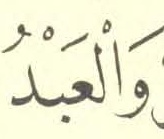 وَالْعَبْدُ